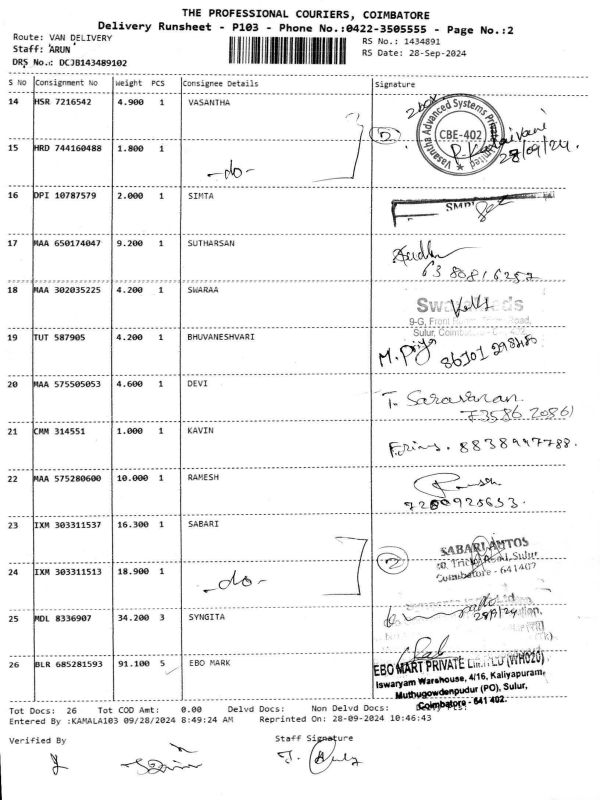 THE PROFESSIONAL COURIERS, COIMBATORE
Delivery Runsheet - P103 - Phone No.:0422-3505555 - Page No.:2
Route: VAN DELIVERY
RS No.: 1434891
Staff: ARUN
RS Date: 28-Sep-2024
DRS No.: DCJB143489102
S NO Consignment No Weight PCS Consignee Details Signature
14 HSR 7216542 4.900 1 VASANTHA
2 box
Vasantha Advanced Systems Private Limited
CBE-402
28/09/24.
15 HRD 744160488 1.800 1 -do-
2
16 DPI 10787579 2.000 1 SIMTA
17 MAA 650174047 9.200 1 SUTHARSAN
18 MAA 302035225 4.200 1 SWARAA
19 TUT 587905 4.200 1 BHUVANESHVARI
M. Priya
20 MAA 575505053 4.600 1 DEVI
T. Saravanan.
73586 20861
21 CMM 314551 1.000 1 KAVIN
8838997788.
22 MAA 575280600 10.000 1 RAMESH
23 IXM 303311537 16.300 1 SABARI
SABARI AUTOS
Coimbatore - 641402
24 IXM 303311513 18.900 1 -do-
2
25 MDL 8336907 34.200 3 SYNGITA
26 BLR 685281593 91.100 5 EBO MARK
EBO MART PRIVATE LIMITED (WH020)
Iswaryam Warehouse, 4/16, Kaliyapuram,
Muthugowdenpudur (PO), Sulur,
Coimbatore - 641 402.
Tot Docs: 26 Tot COD Amt: 0.00 Delvd Docs: Non Delvd Docs:
Entered By :KAMALA103 09/28/2024 8:49:24 AM Reprinted On: 28-09-2024 10:46:43
Verified By Staff Signature